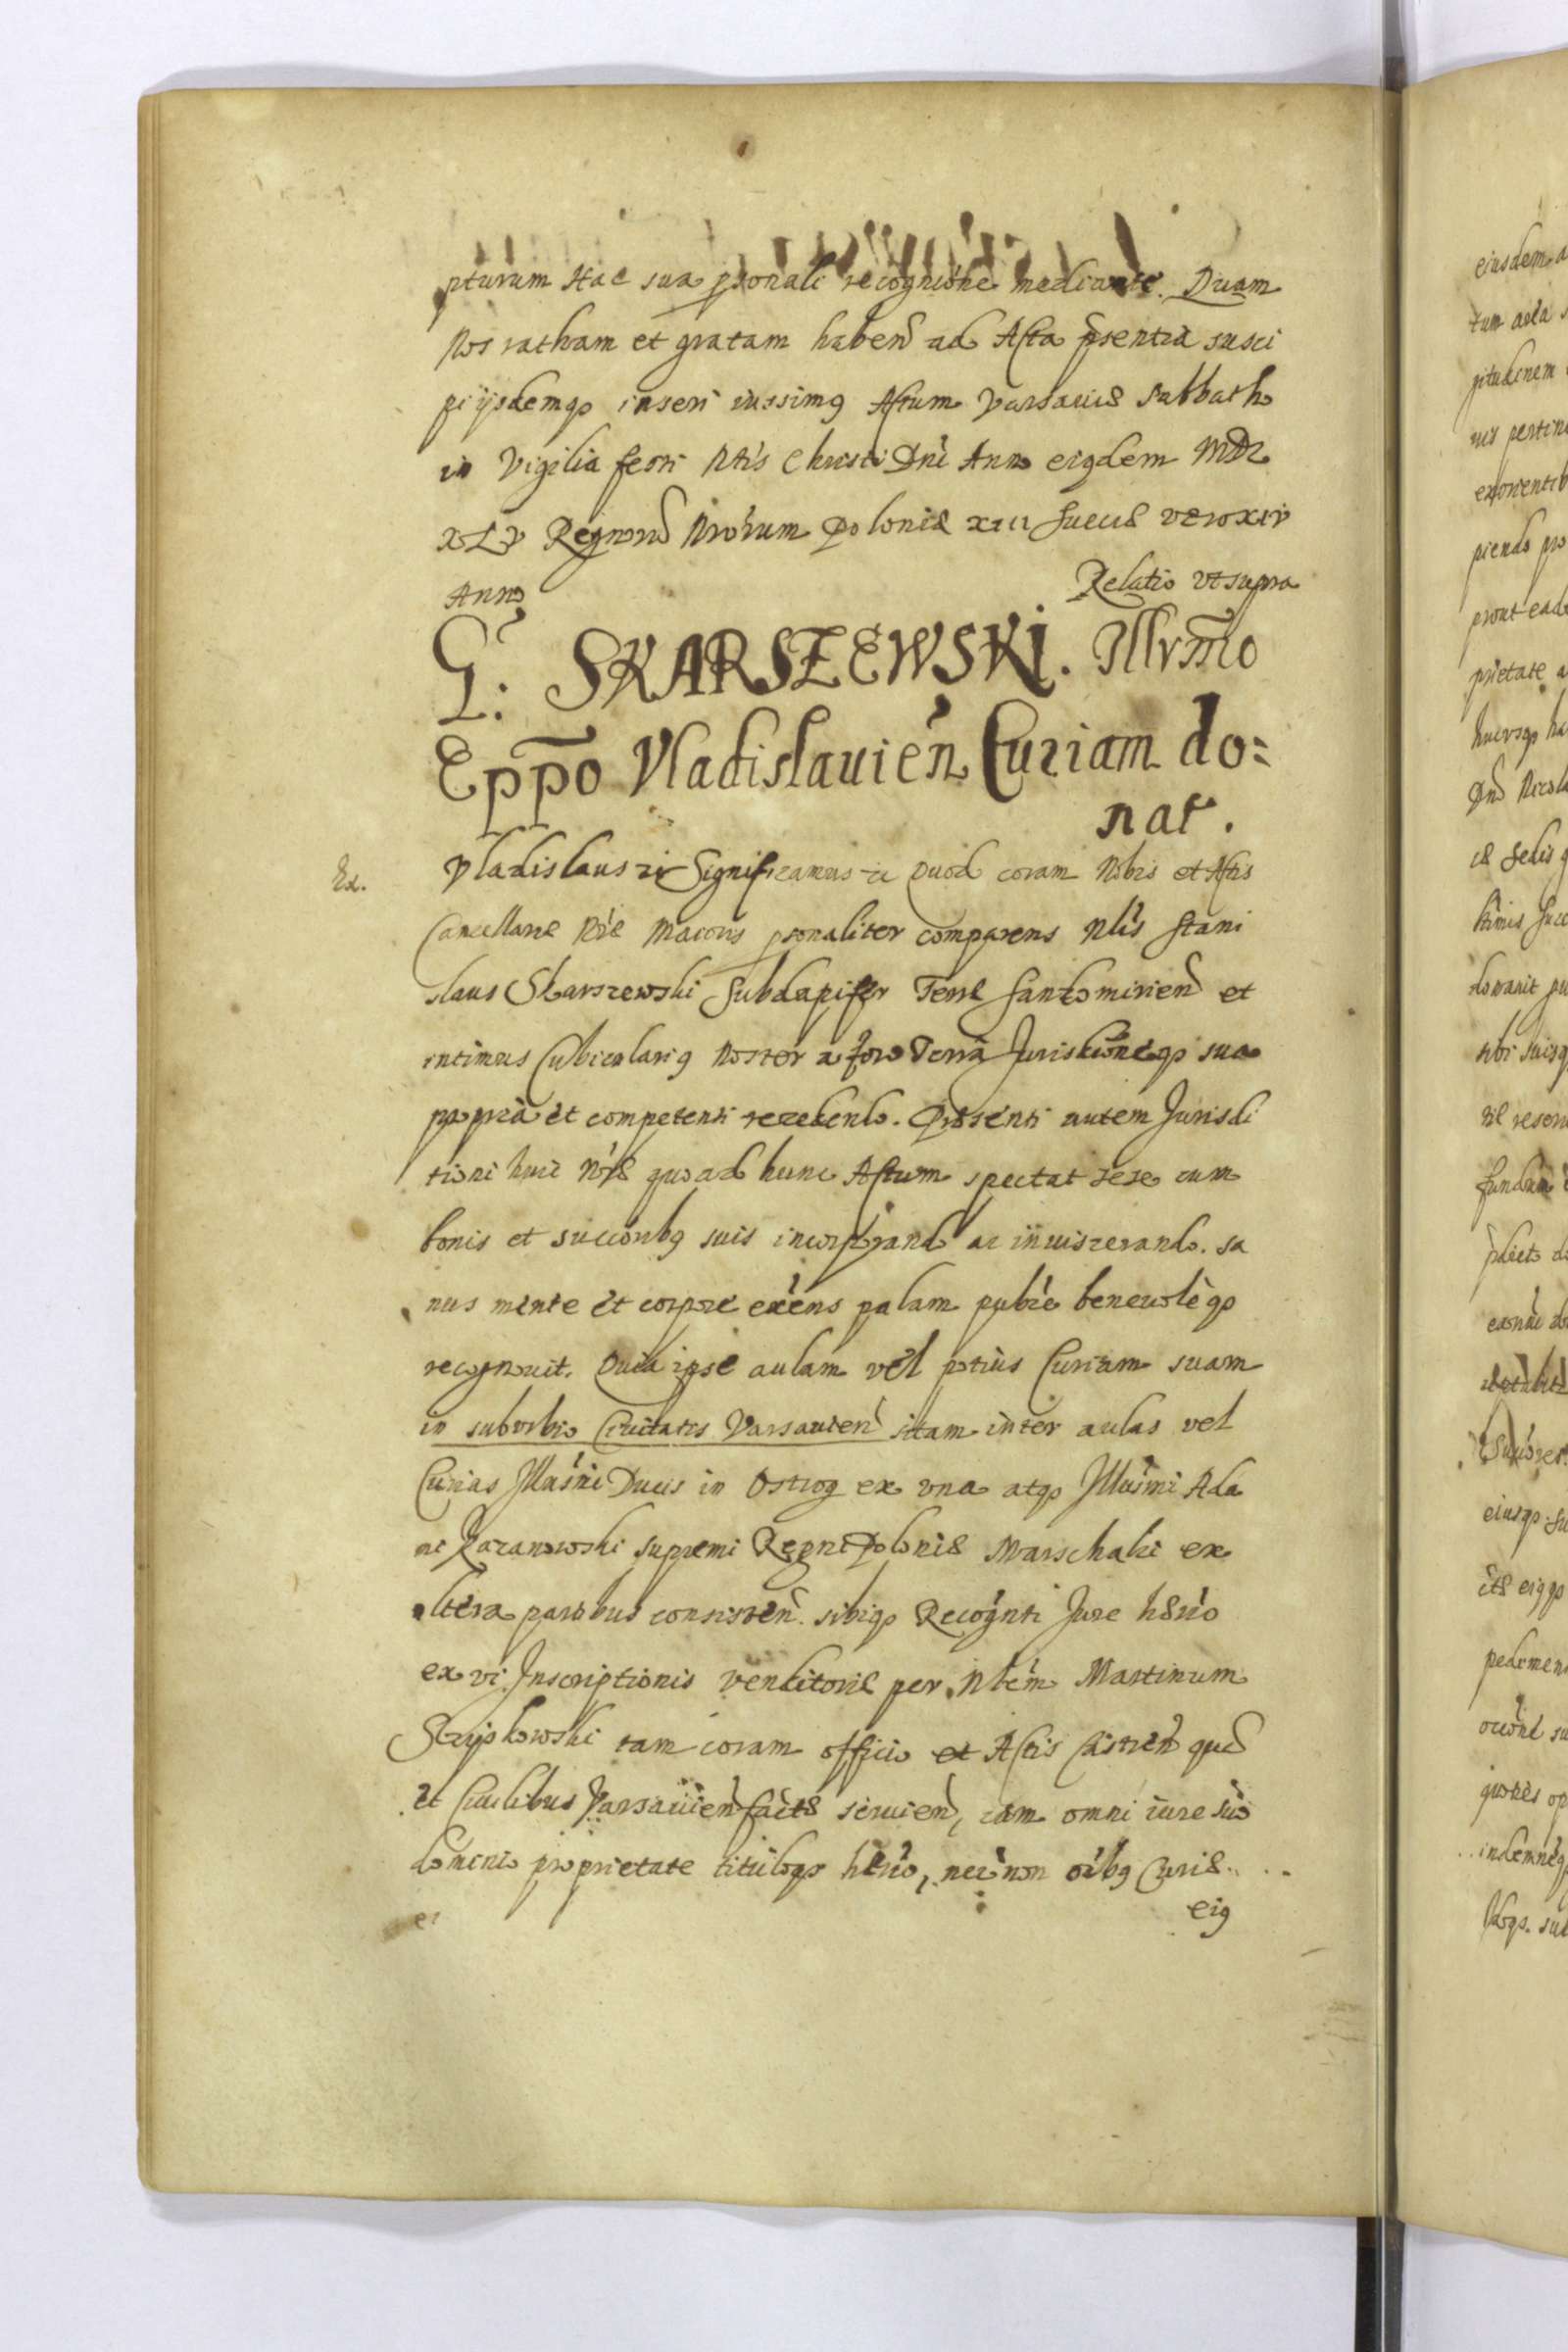 pturum Hac sua psonali recognitióne mediante. Quam
Nos ratham et gratam habend ad Acta psentia susci
pi ijsdemqз inseri iussimꝰ Actum Varsauiæ Sabbatho
in Vigilia festi Ntis Christi Dni Anno eiꝰdem MDC
XLV Regnorũ Nrórum Poloniæ XIII Sueciæ vero XIV
Anno Relatio vt supra
G. SKARSZEWSKI. Illrm̃o
Epp̃o Vladislauień Curiam do=
nat.
Ex. Vladislaus Significamus Quod coram Nobis et Actis
Cancellariæ Nræ Maioris psonaliter comparens Nlis Stani
slaus Skarszewski Subdapifer Terræ Sandomirien et
intimus Cubiculariꝰ Noster a foro Terra Jurisdictióneqз sua
propria et competenti recedendo. Præsenti autem Jurisdi
tioni huic Nræ quo ad hunc Actum spectat sese cum
bonis et succoribꝰ suis incorporand ac inuiscerando. sa
nus mente et corpore exẽns palam publce beneuolè qз
recognouit. Quia ipse aulam vel potiùs Curiam suam
in suburbio Ciuitatis Varsauien sitam inter aulas vel
Curias Illusmi Ducis in Ostrog ex vna atqз Illusmi Ada
mi Kazanowski supremi Regni Poloniæ Marschalci ex
altera partibus consisten. sibiqз Recognti Jure hærio
ex vi Inscriptionis venditoriæ per Nlem Martinum
Szypkowski tam coram officio et Actis Castren quã
et Ciuilibus Varsauien factæ seruien, cum omni iure suo
dominio proprietate tituloqз hærio, necnon oibꝰ Curiæ
eiꝰ